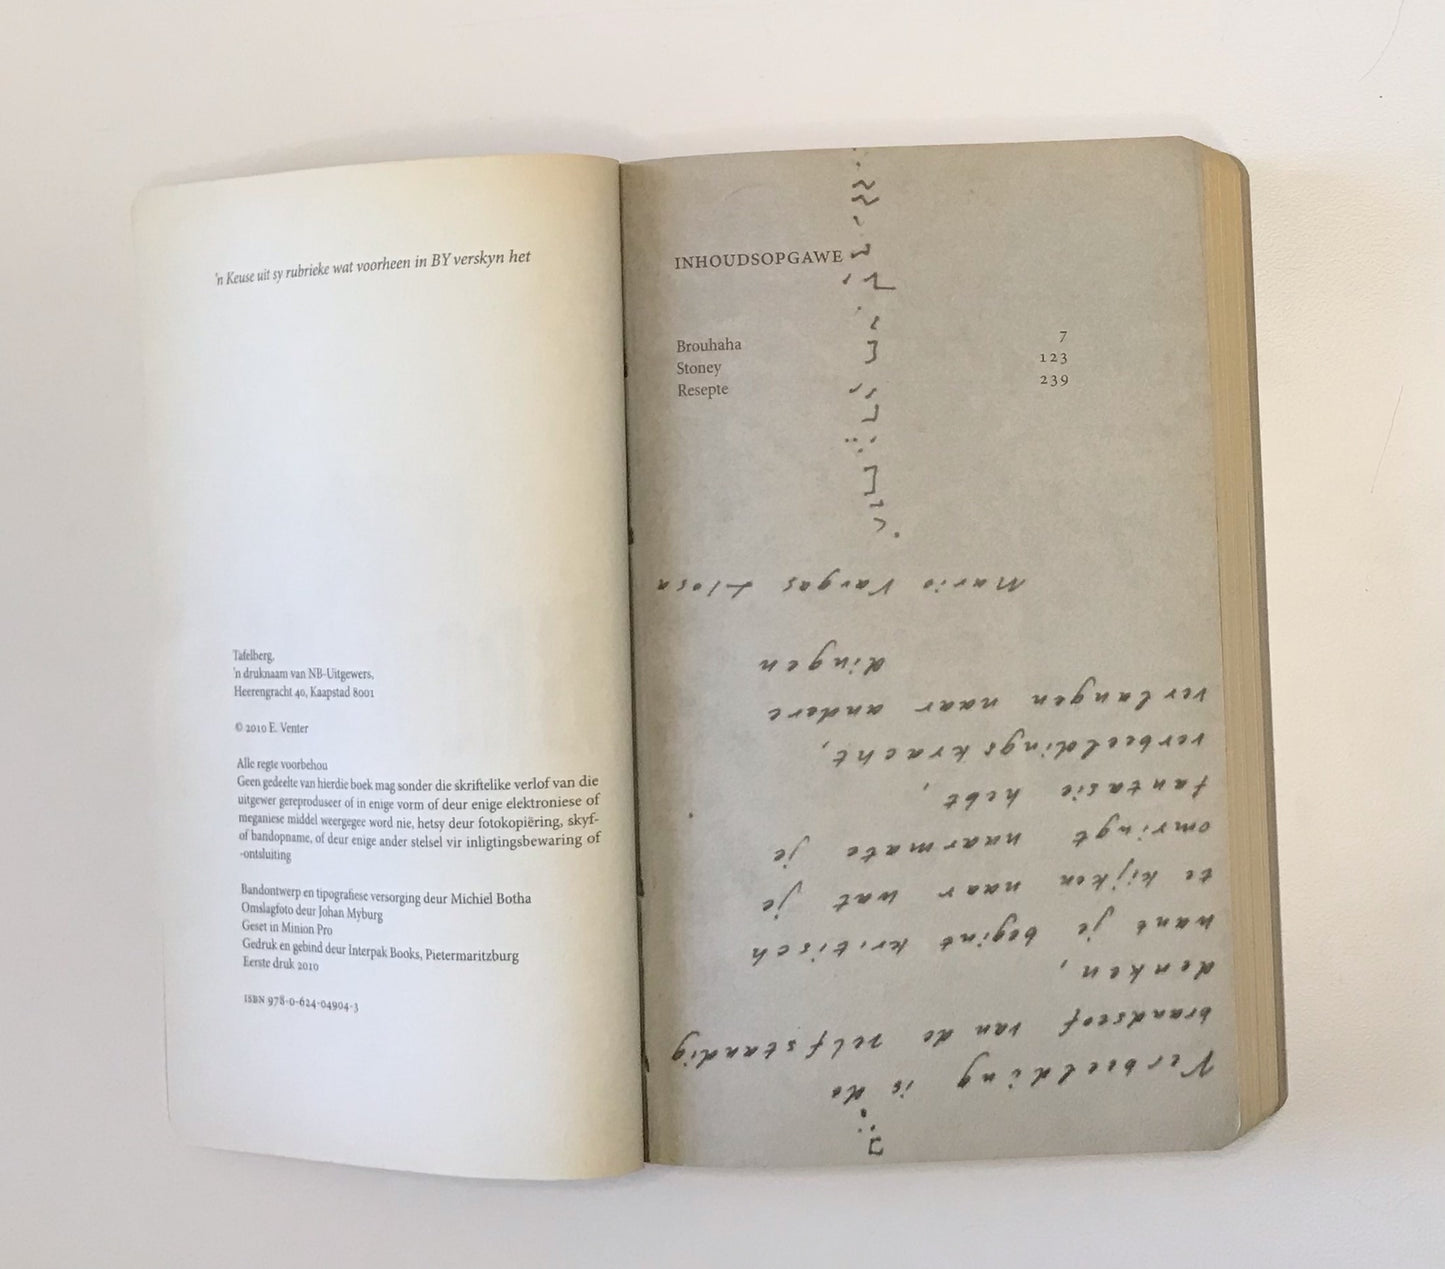 'n Keuse uit sy rubrieke wat voorheen in BY verskyn het
Tafelberg,
'n druknaam van NB-Uitgewers,
Heerengracht 40, Kaapstad 8001
© 2010 E. Venter
Alle regte voorbehou
Geen gedeelte van hierdie boek mag sonder die skriftelike verlof van die
uitgewer gereproduseer of in enige vorm of deur enige elektroniese of
meganiese middel weergegee word nie, hetsy deur fotokopiëring, skyf-
of bandopname, of deur enige ander stelsel vir inligtingsbewaring of
-ontsluiting
Bandontwerp en tipografiese versorging deur Michiel Botha
Omslagfoto deur Johan Myburg
Geset in Minion Pro
Gedruk en gebind deur Interpak Books, Pietermaritzburg
Eerste druk 2010
ISBN 978-0-624-04904-3
INHOUDSOPGAWE
Brouhaha 7
Stoney 123
Resepte 239
Verbeelding is de
brandstof van de zelfstandig
denken,
want je begint kritisch
te kijken naar wat je
omringt naarmate je
fantasie hebt,
verbeeldingskracht,
verlangen naar andere
dingen
Mario Vargas Llosa